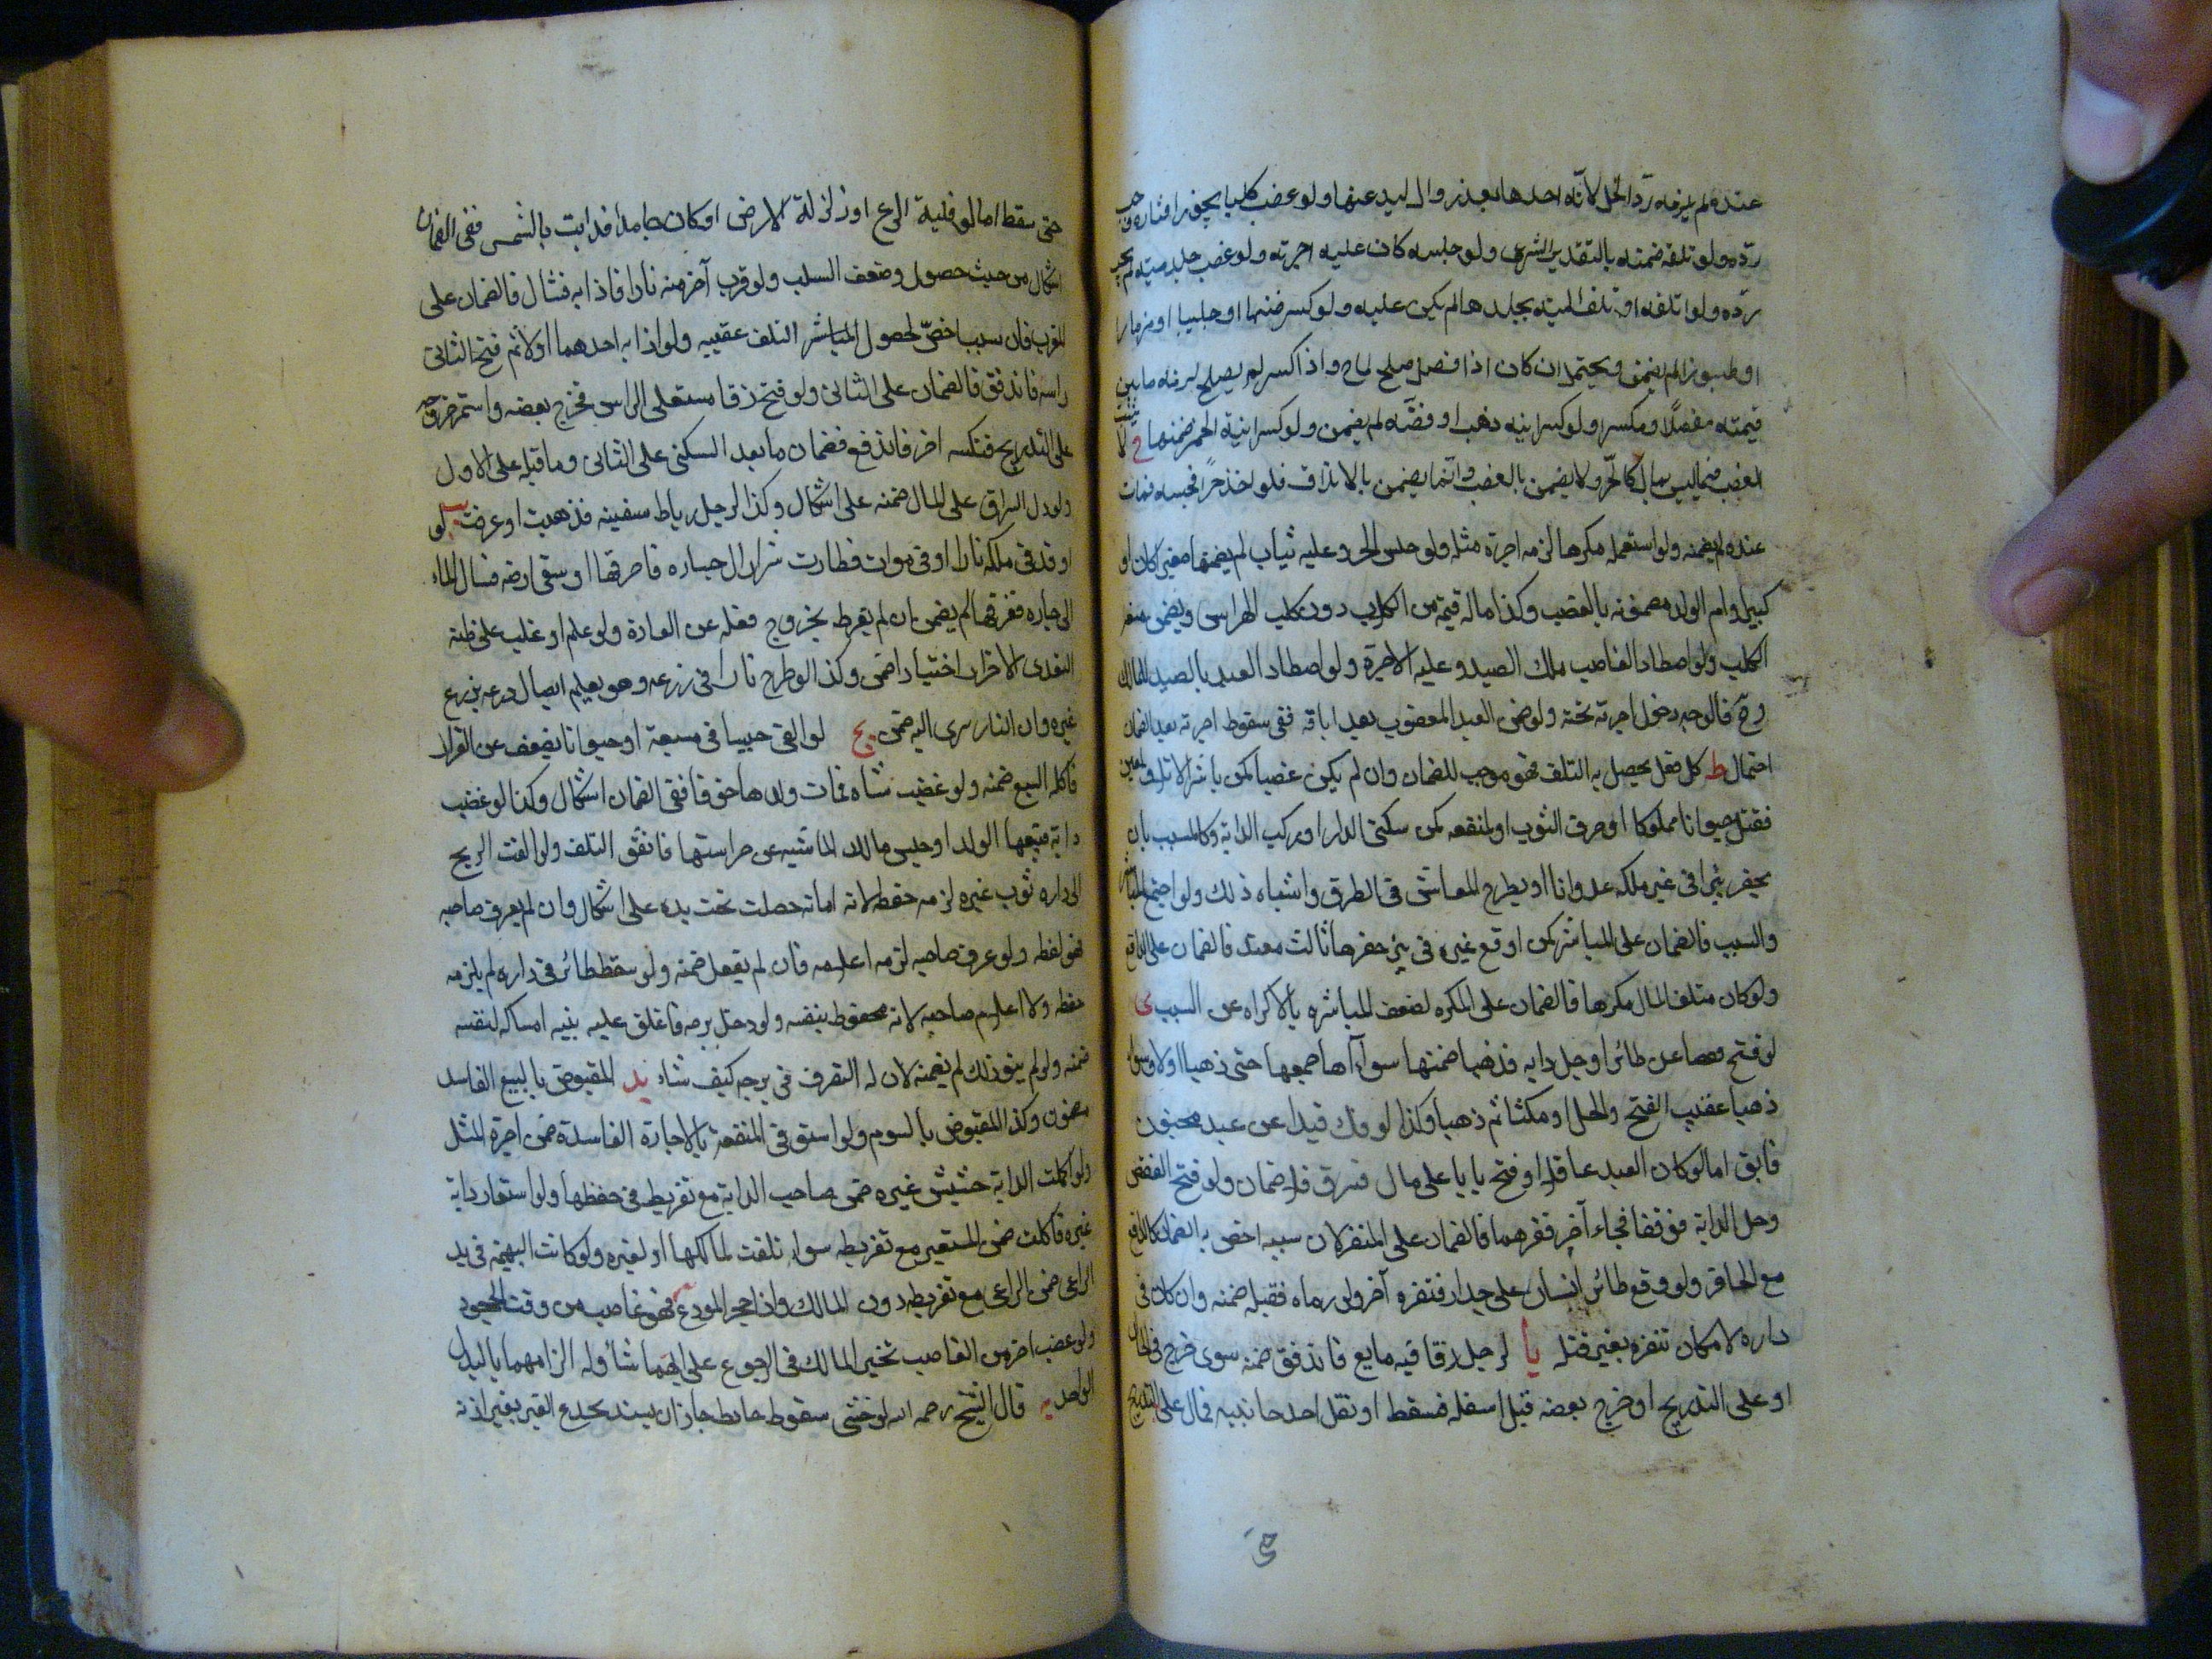 عنده لم يلزمه ردّ الخل لانّه احدهما بعد زوال اليد عنها ولو غصب كلبا يجوز اقتناؤه وجب
ردّه ولو تلف ضمنه بالتقدير الشرعى ولو حبسه كان عليه اجرته ولو غصب جلد ميته لم يجب
ردّه ولو اتلفه او اتلف الميتة بجلدها لم يكن عليه ولو كسر صنما او صليبا او مزمارا
او طنبورا لم يضمن ويحتمل ان كان اذا فصل صلح لمباح واذا كسر لم يصلح لزمه ما بين
قيمته مفصلًا ومكسرا ولو كسر انيه ذهب او فضّه لم يضمن ولو كسر انية الخمر ضمنها ح لا يثبت
الغصب فيما ليس بمال كالحرّ ولا يضمن بالغصب وانّما يضمن بالاتلاف فلو اخذ حرًا فحبسه فمات
عنده لم يضمنه ولو استعمله مكرها لزمه اجرة مثله ولو حبس الحر وعليه ثياب لم يضمنها صغيرا كان او
كبيرا وام الولد مضمونه بالغصب وكذا ماله قيمة من الكلاب دون كلب الهراس ويضمن منفعة
الكلب ولو اصطاد الغاصب ملك الصيد وعليه الاجرة ولو اصطاد العبد فالصيد للمالك
وح فالوجه دخول اجرته تحته ولو ضمن العبد المغصوب بعد اباقه ففى سقوط اجرته بعد الضمان
احتمال ط كل فعل يحصل به التلف فهو موجب للضمان وان لم يكن غصبا كمن باشر الاتلاف للعين
فقتل حيوانا مملوكا او حرق الثوب او لمنفعه كمن سكن الدار او ركب الدابة وكالمسبب بان
يحفر بئرا فى غير ملكه عدوانا او يطرح المعاثر فى الطرق واشباه ذلك ولو اجتمع المباشر
والسبب فالضمان على المباشر كمن اوقع غيره فى بئر حفرها ثالث معتد فالضمان على الدافع
ولو كان متلف المال مكرها فالضمان على المكره لضعف المباشره بالاكراه عن السبب ى
لو فتح قفصا عن طائر او حل دابه فذهبا ضمنها سواء اهاجهما حتى ذهبا اولا وسواء
ذهبا عقيب الفتح والحل او مكثا ثم ذهبا وكذا لو فك قيدا عن عبد مجنون
فابق اما لو كان العبد عاقلا او فتح بابا على مال فسرق فلا ضمان ولو فتح القفص
وحل الدابة فوقفا فجاء آخر فنفرهما فالضمان على المنفر لان سببه اخص به الضمان كالدافع
مع الحافر ولو وقع طائر انسان على جدار فنفره آخر ولو رماه فقتله ضمنه وان كان فى
داره لامكان تنفره بغير قتله يا لو حل زقا فيه مايع فاندفق ضمنه سوى خرج فى الحال
او على التدريج او خرج بعضه قبل اسفله فسقط او ثقل احد جانبيه فمال على التدريج
حتى
حتى سقط اما لو قلبة الريح او زلزلة الارض او كان جامدا فذابت بالشمس ففى الضمان
اشكال من حيث حصول وضعف السبب ولو قرب آخر منه نارا فاذابه فسال فالضمان على
المقرب فان سببا خصّ لحصول المباشر التلف عقيبه ولو اذابه احدهما اولا ثم فتح الثانى
راسه فاندفق فالضمان على الثانى ولو فتح زقا مستعلى الراس فخرج بعضه واستمر خروجه
على التدريج فنكسه اخر فاندفع فضمان ما بعد السكنى على الثانى وما قبله على الاول
ولو دل السراق على المال ضمنه على اشكال وكذا لو حل رباط سفينه فذهبت او غرقت يب لو
اوقد فى ملكه نارا او فى موات فطارت شرار الى جاره فاحرقها او سقى ارضه فسال الماء
الى جاره فغرقها لم يضمن ان لم يفرط بخروج فعله عن العادة ولو علم او غلب على ظنه
التعدى الاضرار اختيارا ضمن وكذا لو طرح نارا فى زرعه وهو يعلم اتصال زرعه بزرع
غيره وان النار تسرى اليه ضمن يج لو القى حبيبا فى مسبعة او حيوانا يضعف عن الفرار
فاكله السبع ضمنه ولو غصب شاه فمات ولدها جوعا ففى الضمان اشكال وكذا لو غصب
دابه فتبعها الولد او حبس مالك الماشيه عن حراستها فاتفق التلف ولو القت الريح
الى داره ثوب غيره لزمه حفظه لانه امانه حصلت تحت يده على اشكال وان لم يعرف صاحبه
فهو لقطه ولو عرف صاحبه لزمه اعلامه فان لم يفعل ضمنه ولو سقط طائر فى داره لم يلزمه
حفظه ولا اعلام صاحبه لانه محفوظ بنفسه ولو دخل برجه فاغلق عليه بنيه امساكه لنفسه
ضمنه ولو لم ينو ذلك لم يضمنه لان له التصرف فى برجه كيف شاء يد المقبوض بالبيع الفاسد
مضمون وكذا المقبوض بالسوم ولو استوفى المنفعة بالاجارة الفاسدة ضمن اجرة المثل
ولو اكلت الدابة حشيش غيره ضمن صاحب الدابة مع تفريطه فى حفظها ولو استعار دابة
غيره فاكلت ضمن المستعير مع تفريطه سواء تلفت لمالكها او لغيره ولو كانت البهيمة فى يد
الراعى ضمن الراعى مع تفريطه دون المالك واذا جحد المودع فهو غاصب من وقت الجحود
ولو غصب اخر من الغاصب تخير المالك فى الرجوع على ايهما شاء وله الزامهما بالبدل
الواحد يه قال الشيخ رحمه الله لو خشى سقوط حايط جاز ان يسند بجذع الغير بغير اذنه